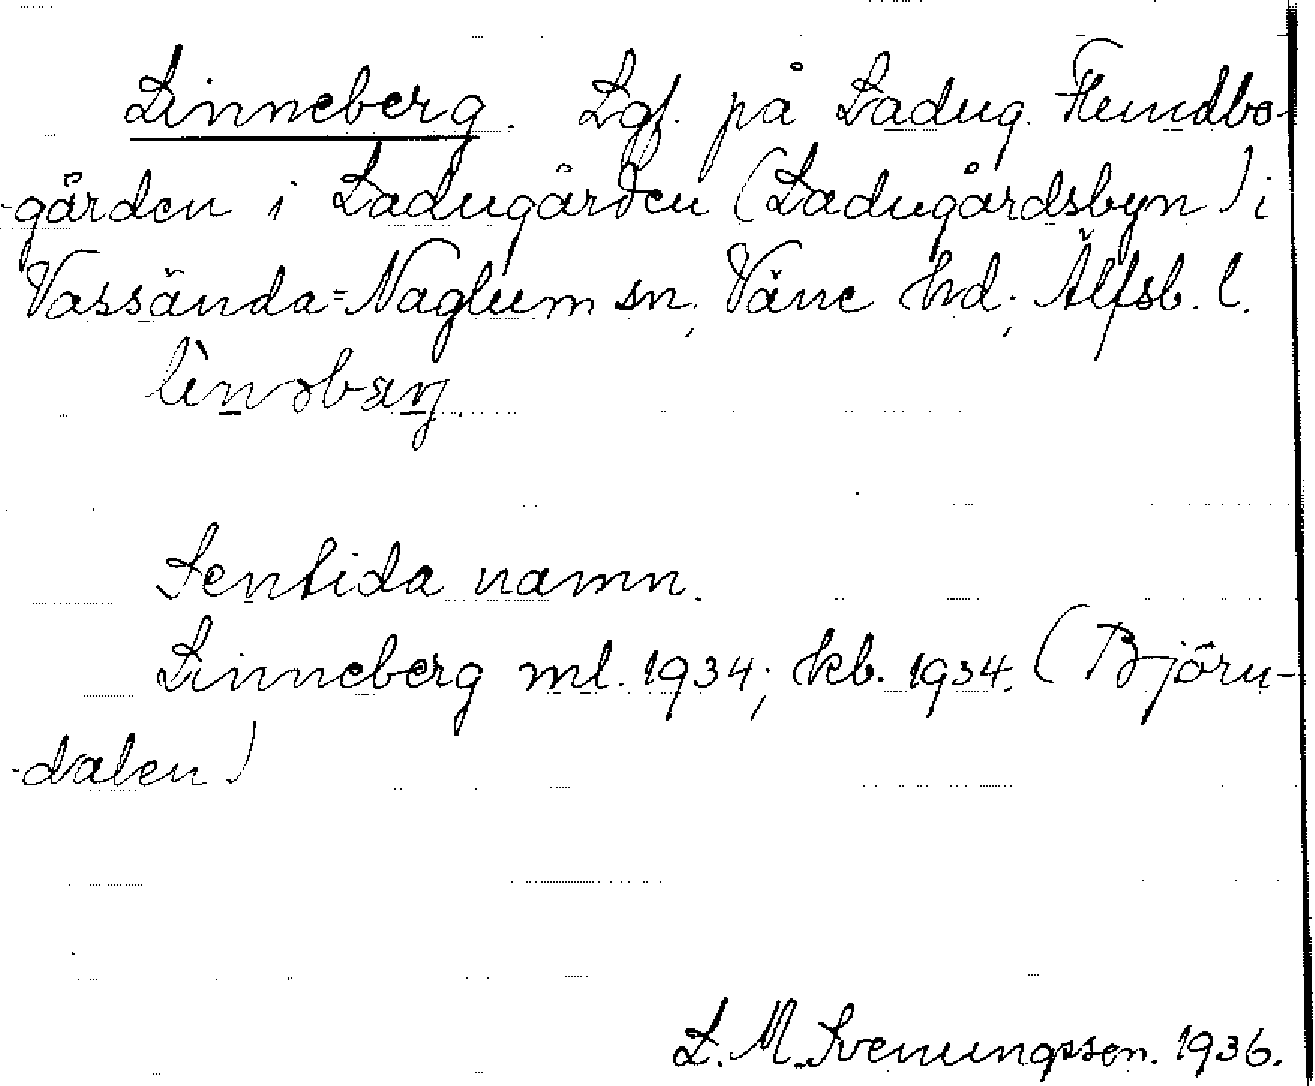 Linneberg. Lgf. på Ladug. Flundbo-
-gården i Ladugården (Ladugårdsbyn) i
Vassända=Naglum sn, Väne hd, Älfsb. l.
Sentida namn.
Linneberg ml. 1934; kb. 1934. (Björn-
-dalen)
L. M. Svenungsson. 1936.